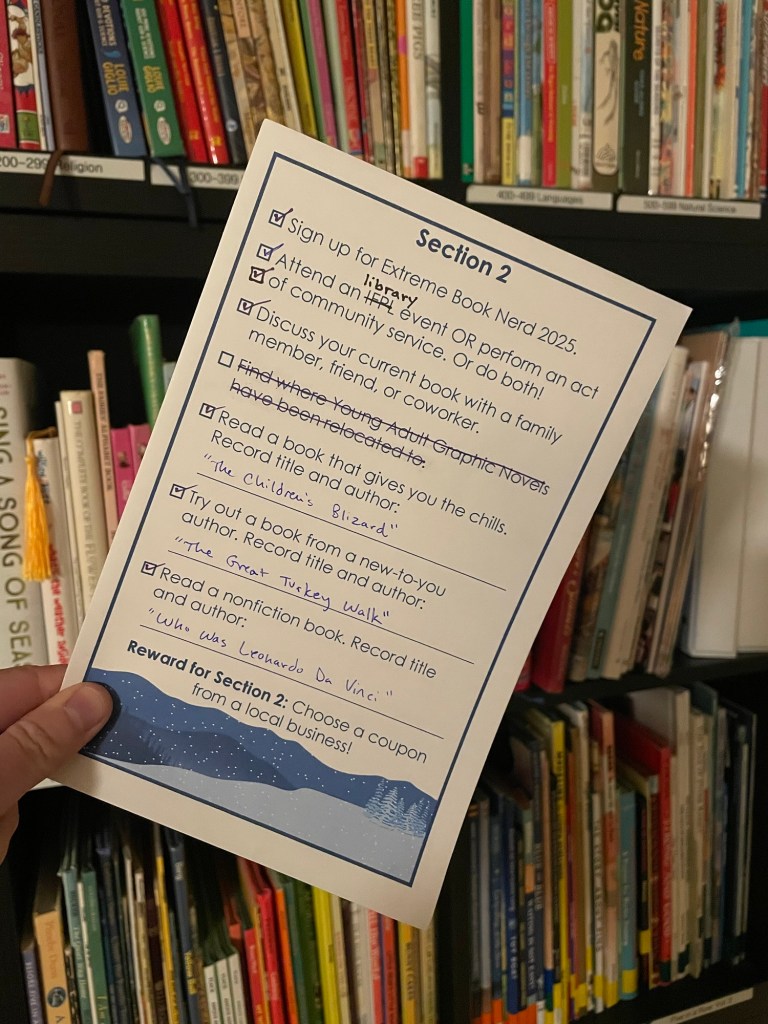 200-299 Religion
300-399
400-499 Languages
500-599 Natural Science
Nature
LOUIE GIGLIO
LOUIE GIGLIO
SING A SONG OF SEA
Section 2
Sign up for Extreme Book Nerd 2025.
library
Attend an IFPL event OR perform an act
of community service. Or do both!
Discuss your current book with a family
member, friend, or coworker.
Find where Young Adult Graphic Novels
have been relocated to.
Read a book that gives you the chills.
Record title and author:
"The Children's Blizzard"
Try out a book from a new-to-you
author. Record title and author:
"The Great Turkey Walk"
Read a nonfiction book. Record title
and author:
"Who Was Leonardo Da Vinci"
Reward for Section 2: Choose a coupon
from a local business!